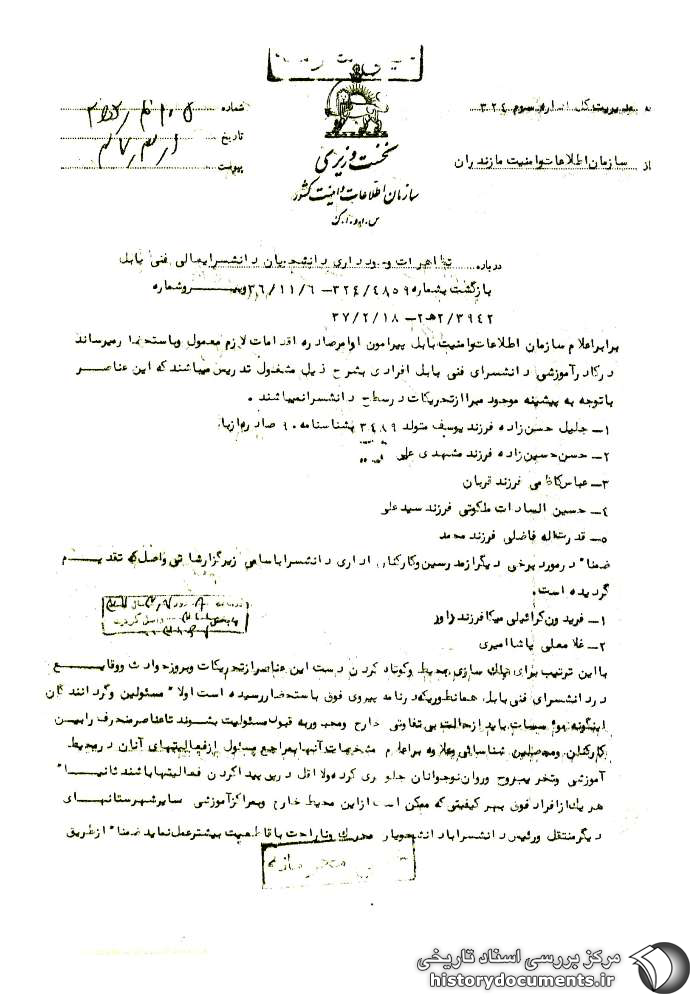 به مدیریت کل اداره سوم ۳۲۴
از سازمان اطلاعات وامنیت مازندران
شماره
تاریخ
پیوست
نخست وزیری
سازمان اطلاعات و امنیت کشور
س.ا.و.ا.ک
درباره تظاهرات وخودداری دانشجویان دانشسرایعالی فنی بابل
بازگشت بشماره ۳۲۴/۴۸۵۹ – ۳۶/۱۱/۶ وپیرو شماره
۲/۳۹۴۲ه۲ – ۳۷/۲/۱۸
برابراعلام سازمان اطلاعات وامنیت بابل پیرامون اوامرصادره اقدامات لازم معمول وباستحضار میرساند
درکادرآموزشی دانشسرای فنی بابل افرادی بشرح ذیل مشغول تدریس میباشند که این عناصر
باتوجه به پیشینه موجود مبرا ازتحریکات درسطح دانشسرا نمیباشند .
۱– جلیل حسن زاده فرزند یوسف متولد ۳۴۸۹ بشناسنامه ۹۰ صادره ازبابل
۲– حسن حسین زاده فرزند مشهدی علی
۳– عباس کاظمی فرزند قربان
۴– حسین السادات ملکوتی فرزند سیدعلی
۵– قدرت اله فاضلی فرزند محمد
ضمنا" درمورد برخی دیگراز مدرسین وکارکنان اداری دانشسرا باسامی زیرگزارشاتی واصل که تقدیم
گردیده است.
۱– فریدون کرائیلی میکا فرزند داور
۲– غلامعلی پاشا امیری
با این ترتیب برای پاک سازی محیط وکوتاه کردن دست این عناصر ازتحریکات وبروزحوادث ووقایع
در دانشسرای فنی بابل همانطوریکه درنامه پیروی فوق باستحضار رسیده است اولا" مسئولین وگردانندگان
اینگونه موسسات باید ازحالت بی تفاوتی خارج ومجبور به قبول مسئولیت بشوند تاعناصر منحرف رابین
کارکنان ومحصلین شناسائی وعلاوه براعلام مشخصات آنها بمراجع مسئول ازفعالیتهای آنان درمحیط
آموزشی وتخریب روح وروان نوجوانان جلوگیری کرده ولااقل درپی پیدا کردن فعالیتها باشند ثانیا"
هر یک از افراد فوق بهر کیفیتی که ممکن است ازاین محیط خارج وبمراکز آموزشی سایر شهرستانهای
دیگر منتقل ورئیس دانشسرا با دانشجویان محرک وناراحت با قاطعیت بیشتر عمل نماید ضمنا" ازطریق
مرکز بررسی اسناد تاریخی
historydocuments.ir